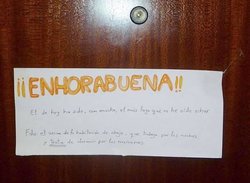 ¡¡ENHORABUENA!!
El de hoy ha sido, con mucho, el más largo que os he oído echar
Fdo: el vecino de la habitación de abajo, que trabaja por las noches
e intenta de dormir por las mañanas